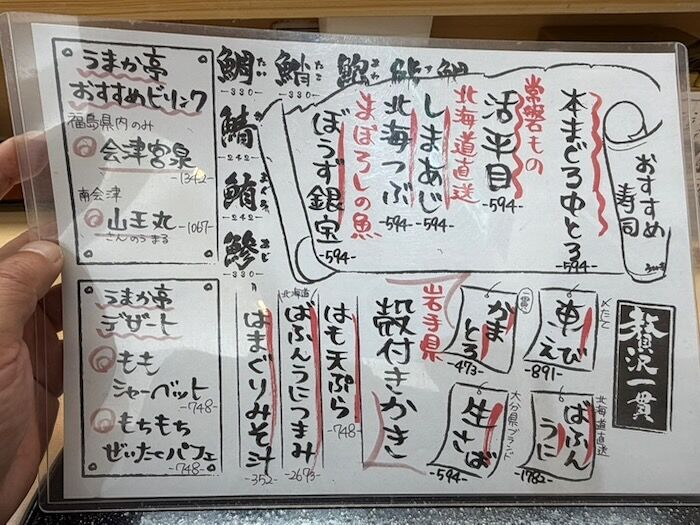 おすすめ
寿司
本まぐろ中とろ
-594-
常磐もの
活平目
-594-
北海道直送
しまあじ
-594-
北海つぶ
-594-
まぼろしの魚
ぼうず銀宝
-594-
鯛
たい
-330-
鮹
たこ
-330-
鯖
-242-
鮪
まぐろ
-242-
鯵
あじ
-330-
うまか亭
おすすめドリンク
福島県内のみ
会津宮泉
-1342-
南会津
山王丸
さんのうまる
-1067-
贅沢一貫
〆たて
車えび
-891-
一貫
かまとろ
-473-
北海道直送
ばふんうに
-1782-
大分県ブランド
生さば
-594-
岩手県
殻付きかき
はも天ぷら
-748-
北海道
ばふんうにつまみ
-2695-
はまぐりみそ汁
-352-
うまか亭
デザート
もも
シャーベット
-748-
もちもち
ぜいたくパフェ
-748-